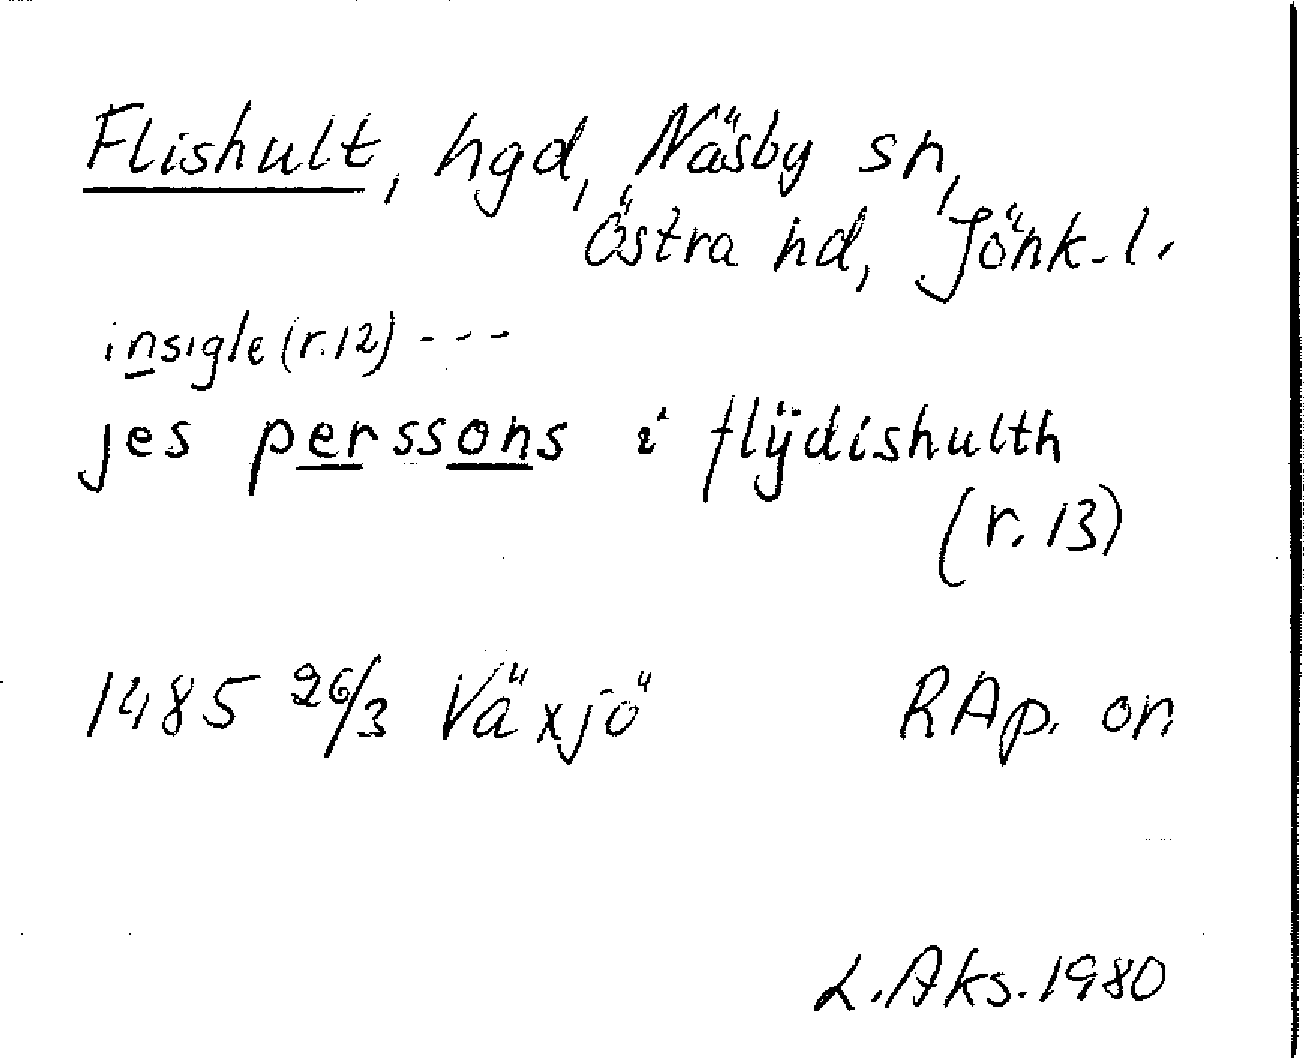 Flishult, hgd, Näsby sn,
Östra hd, Jönk. l.
insigle (r.12) - - -
jes perssons i flÿdishulth
(r. 13)
1485 26/3 Växjö RAp. or.
L. Aks. 1980